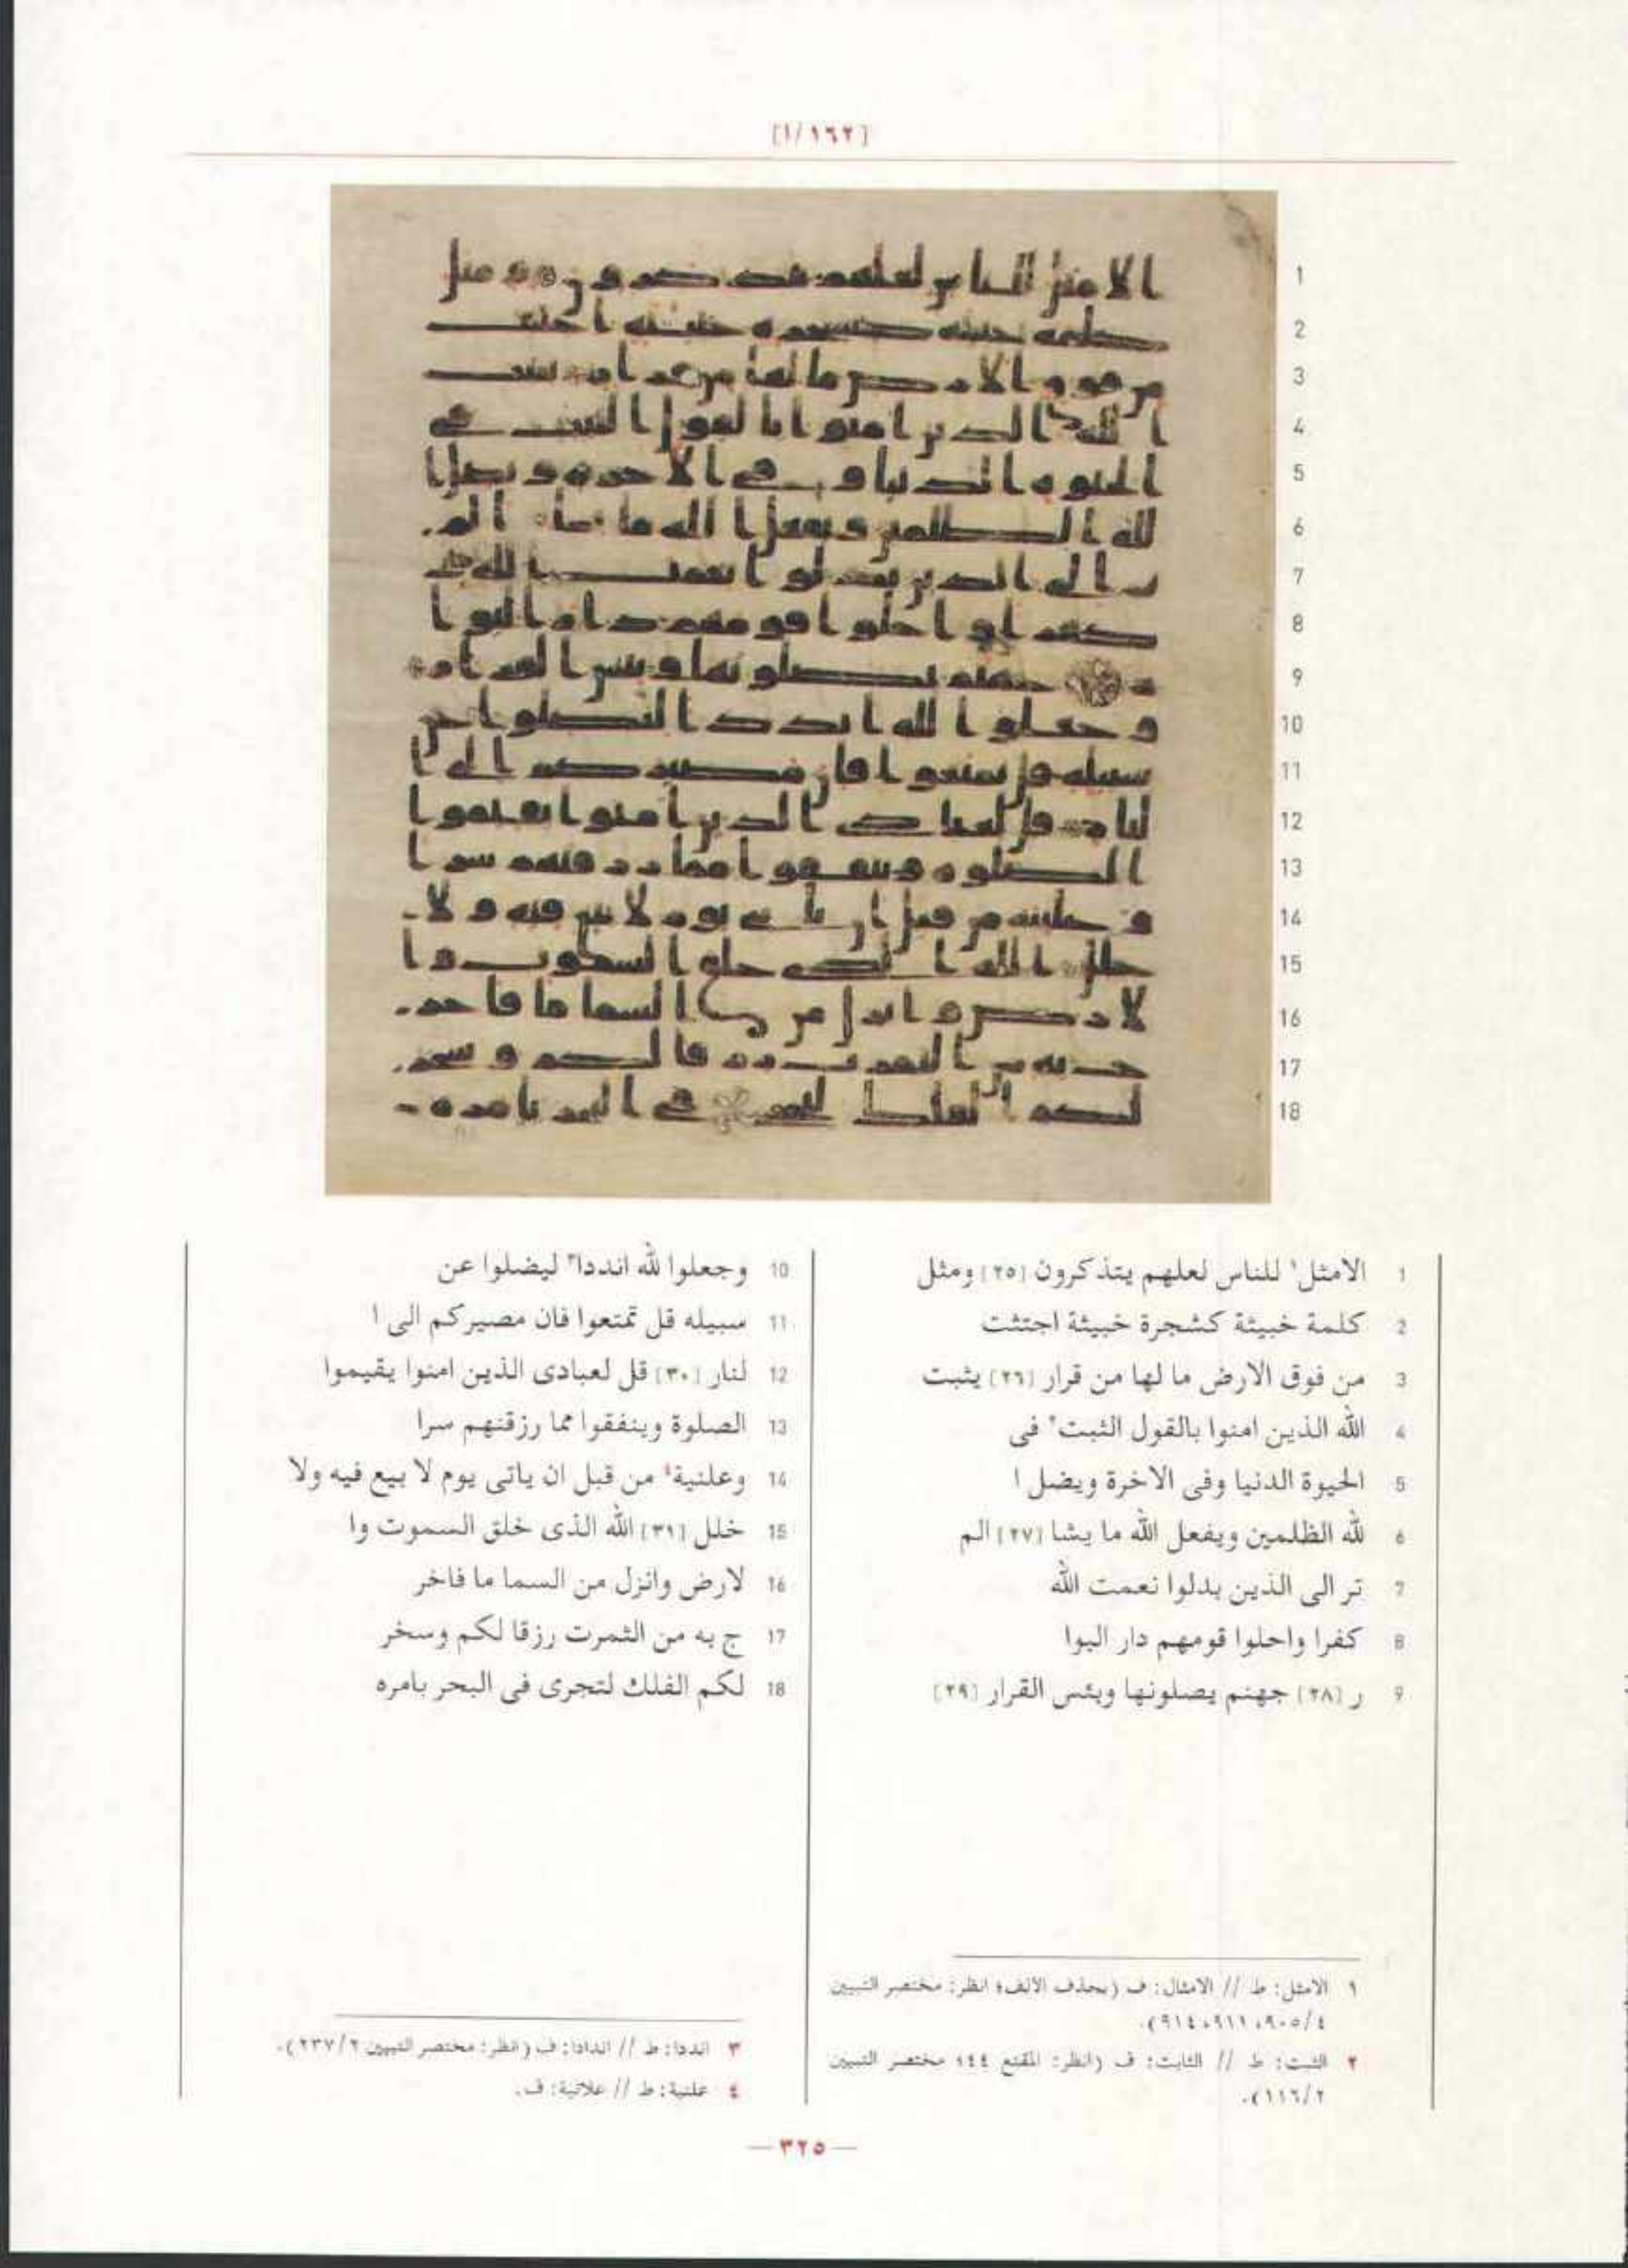 [١/١٦٢]
1 الامثل١ للناس لعلهم يتذكرون [٢٥] ومثل
2 كلمة خبيثة كشجرة خبيثة اجتثت
3 من فوق الارض ما لها من قرار [٢٦] يثبت
4 الله الذين امنوا بالقول الثبت٢ فى
5 الحيوة الدنيا وفى الاخرة ويضل ا
6 لله الظلمين ويفعل الله ما يشا [٢٧] الم
7 تر الى الذين بدلوا نعمت الله
8 كفرا واحلوا قومهم دار البوا
9 ر [٢٨] جهنم يصلونها وبئس القرار [٢٩]
10 وجعلوا لله انددا٣ ليضلوا عن
11 سبيله قل تمتعوا فان مصيركم الى ا
12 لنار [٣٠] قل لعبادى الذين امنوا يقيموا
13 الصلوة وينفقوا مما رزقنهم سرا
14 وعلنية٤ من قبل ان ياتى يوم لا بيع فيه ولا
15 خلل [٣١] الله الذى خلق السموت وا
16 لارض وانزل من السما ما فاخر
17 ج به من الثمرت رزقا لكم وسخر
18 لكم الفلك لتجرى فى البحر بامره
١ الامثل: ط // الامثال: ف (بحذف الالف؛ انظر: مختصر التبيين
٤/٩٠٥، ٩١١، ٩١٤).
٢ الثبت: ط // الثابت: ف (انظر: المقنع ٤٤؛ مختصر التبيين
٢/١١٦).
٣ انددا: ط // اندادا: ف (انظر: مختصر التبيين ٢/٢٣٧).
٤ علنية: ط // علانية: ف.
— ٣٢٥ —